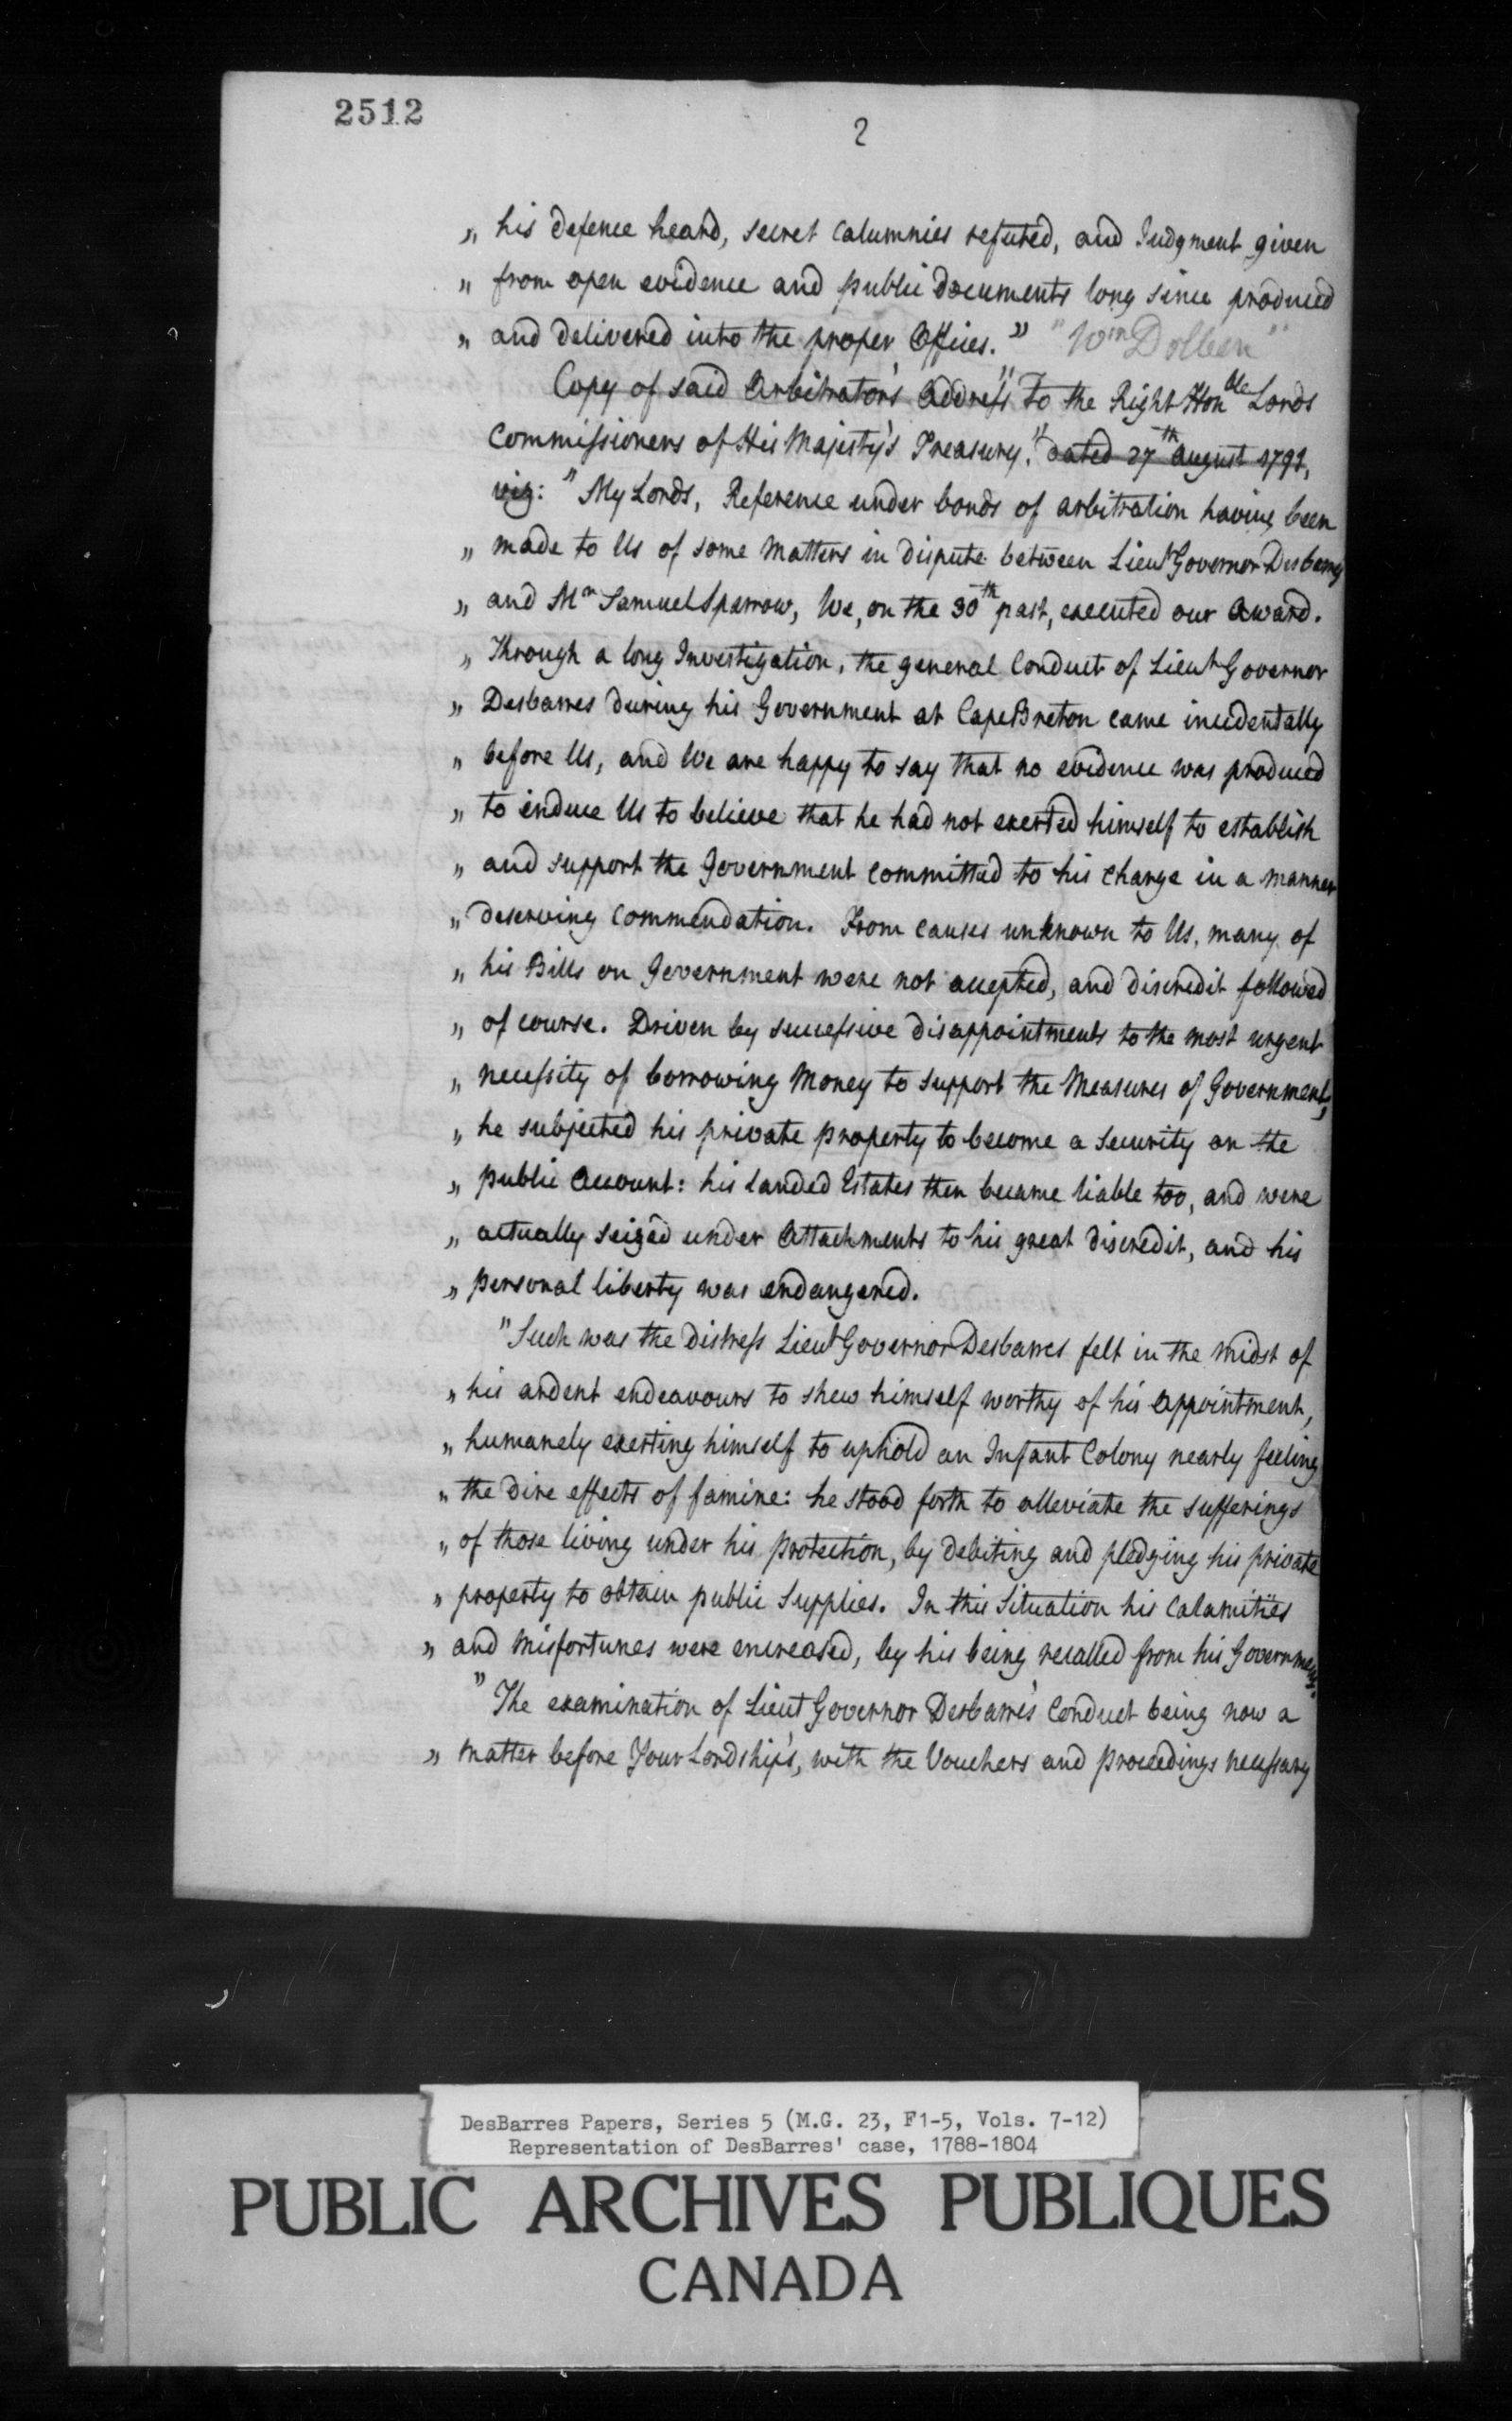 2512
2
„ his defence heard, secret calumnies refuted, and Judgment given
„ from open evidence and public documents long since produced
„ and delivered into the proper Offices." "Wm Dolben"
Copy of said Arbitrator's Address "To the Right Honble Lords
Commissioners of His Majesty's Treasury," dated 27th August 1791,
viz: "My Lords, Reference under bonds of arbitration having been
„ made to Us of some Matters in dispute between Lieut Governor Desbarres
„ and Mr Samuel Sparrow, We, on the 30th past, executed our Award.
„ Through a long Investigation, the general Conduct of Lieut Governor
„ Desbarres during his Government at Cape Breton came incidentally
„ before Us, and We are happy to say that no evidence was produced
„ to induce Us to believe that he had not exerted himself to establish
„ and support the Government committed to his charge in a manner
„ deserving commendation. From causes unknown to Us, many of
„ his Bills on Government were not accepted, and discredit followed
„ of course. Driven by successive disappointments to the most urgent
„ necessity of borrowing Money to support the Measures of Government,
„ he subjected his private property to become a security on the
„ public Account: his landed Estates then became liable too, and were
„ actually seized under Attachments to his great discredit, and his
„ personal liberty was endangered.
"Such was the distress Lieut Governor Desbarres felt in the midst of
„ his ardent endeavours to shew himself worthy of his appointment,
„ humanely exerting himself to uphold an Infant Colony nearly feeling
„ the dire effects of famine: he stood forth to alleviate the sufferings
„ of those living under his protection, by debiting and pledging his private
„ property to obtain public Supplies. In this Situation his Calamities
„ and Misfortunes were encreased, by his being recalled from his Government.
"The examination of Lieut Governor Desbarres's Conduct being now a
„ matter before Your Lordship's, with the Vouchers and proceedings necessary
DesBarres Papers, Series 5 (M.G. 23, F1-5, Vols. 7-12)
Representation of DesBarres' case, 1788-1804
PUBLIC ARCHIVES PUBLIQUES
CANADA